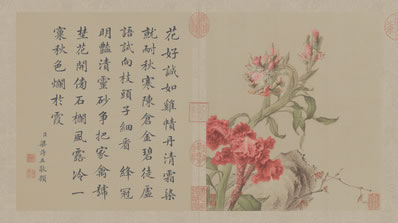 花好誠如雞幘丹清霜染
就耐秋寒陳倉金碧徒虛
語試向枝頭子細看 絳冠
明豔靈砂爭把家禽號
埜花開傍石欄風露冷一
秋色爛於霞
臣梁詩正敬題